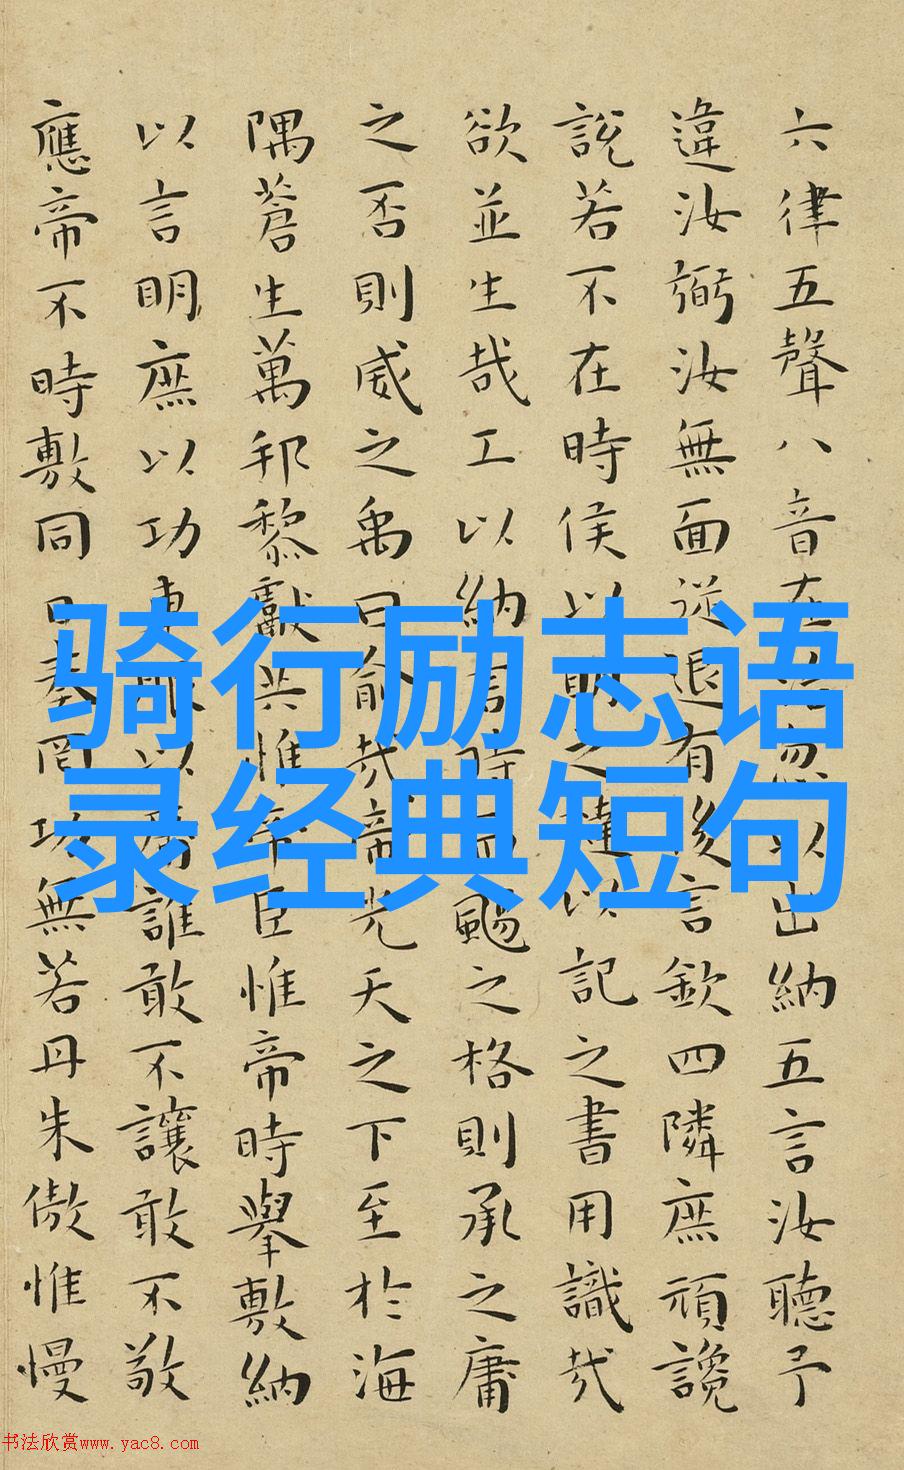 六律五聲八音在治忽以出納五言汝聽予
違汝弼汝無面從退有後言欽四隣庶頑讒
說若不在時侯以明之撻以記之書用識哉
欲並生哉工以納言時而颺之格則承之庸
之否則威之禹曰俞哉帝光天之下至於海
隅蒼生萬邦黎獻共惟帝臣惟帝時舉敷納
以言明庶以功車服以庸誰敢不讓敢不敬
應帝不時敷同日奏罔功無若丹朱傲惟慢
骑行励志语
录经典短句
书法欣赏www.yac8.com